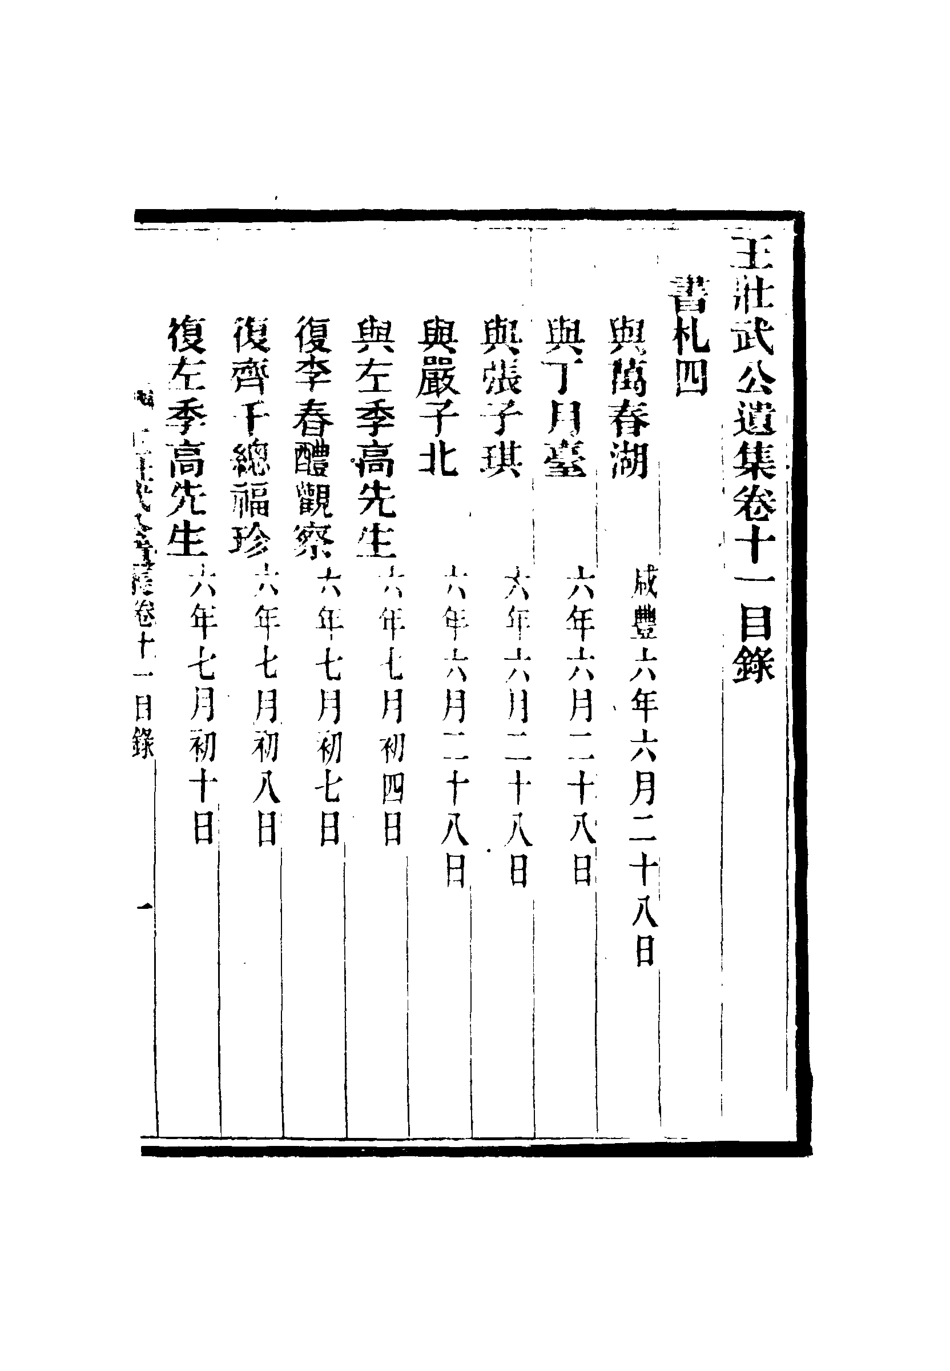 王壯武公遺集卷十一目錄
書札四
與萬春湖 咸豐六年六月二十八日
與丁月臺 六年六月二十八日
與張子琪 六年六月二十八日
與嚴子北 六年六月二十八日
與左季高先生 六年七月初四日
復李春醴觀察 六年七月初七日
復齊千總福珍 六年七月初八日
復左季高先生 六年七月初十日
卷十一目錄 一